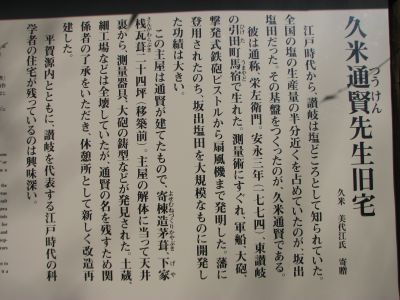 久米通賢先生旧宅
つうけん
久米 美代江氏 寄贈
江戸時代から、讃岐は塩どころとして知られていた。
全国の塩の生産量の半分近くを占めていたのが、坂出
塩田だった。その基盤をつくったのが、久米通賢である。
彼は通称 栄左衛門。安永三年(一七七四)、東讃岐
の引田町馬宿で生れた。測量術にすぐれ、軍船、大砲、
撃発式鉄砲ピストルから扇風機まで発明した。藩に
登用されたのち、坂出塩田を大規模なものに開発し
た功績は大きい。
この主屋は通賢が建てたもので、寄棟造茅葺、下家
桟瓦葺、二十四坪(移築前)。主屋の解体に当って天井
裏から、測量器具、大砲の鋳型などが発見された。土蔵、
細工場などは全壊していたが、通賢の名を残すため関
係者の了承をいただき、休憩所として新しく改造再
建した。
平賀源内とともに、讃岐を代表する江戸時代の科
学者の住宅が残っているのは興味深い。